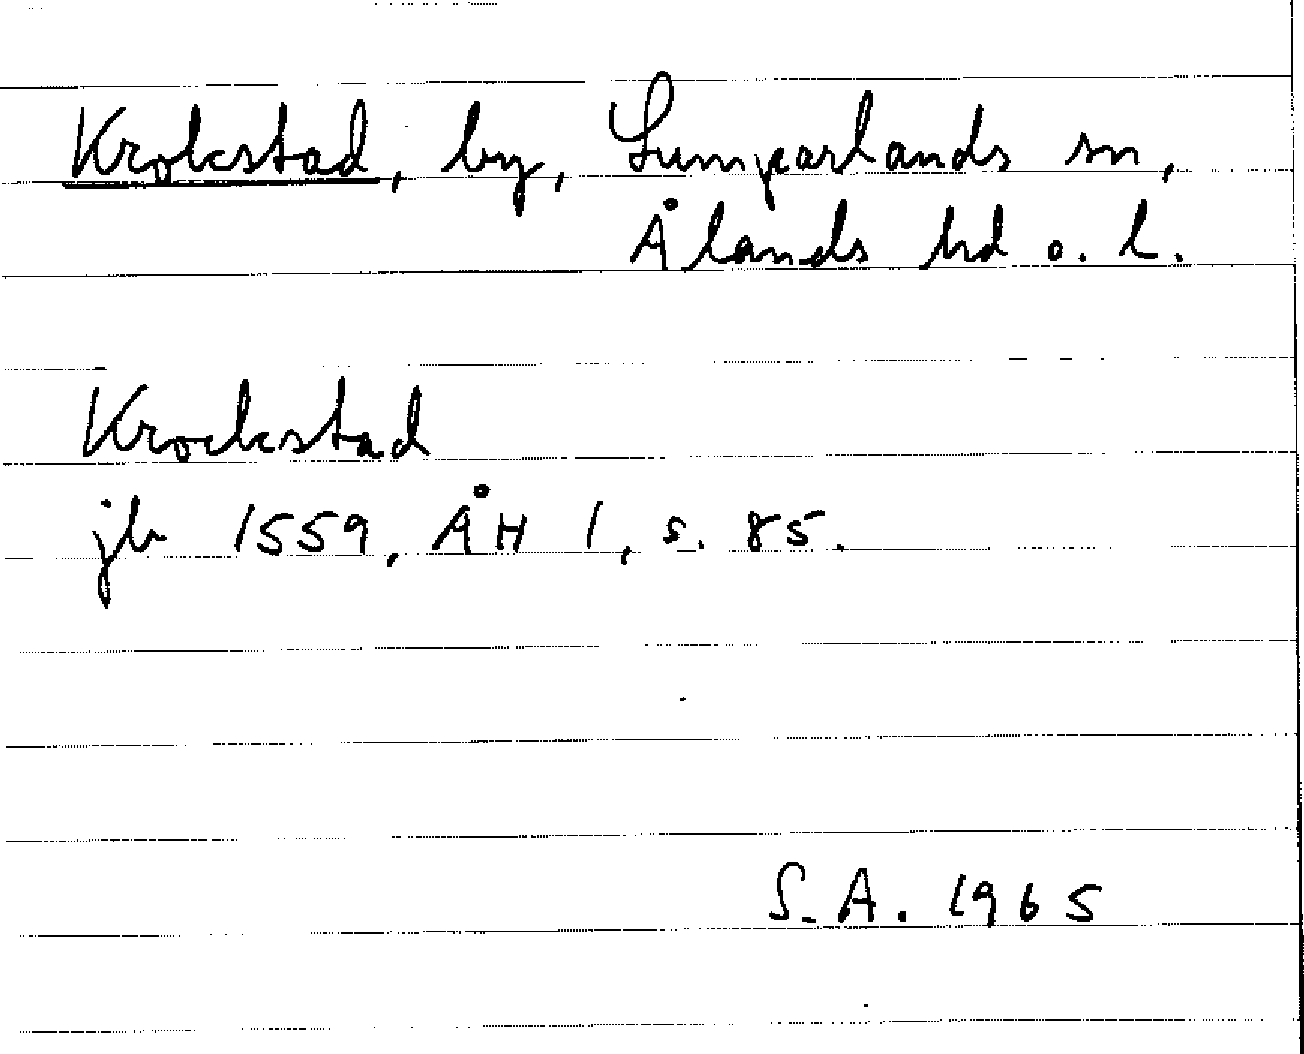 Krokstad, by, Lumparlands sn,
Ålands hd o. l.
Krockstad
jb 1559, ÅH 1, s. 85.
S.A. 1965